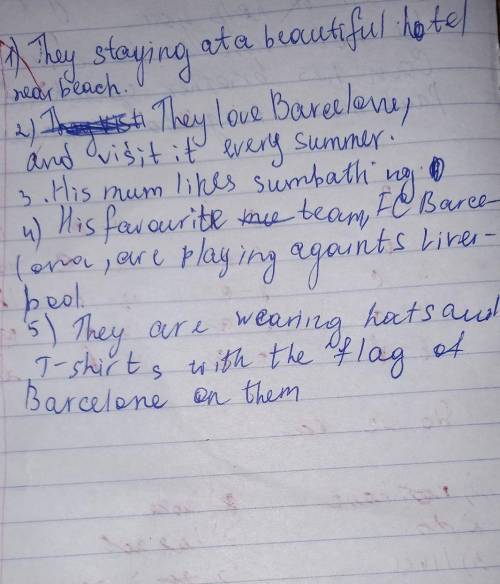 1) They staying at a beautiful hotel
near beach.
2) They love Barcelone,
and visit it every summer.
3. His mum likes sumbathing.
4) His favourite team, FC Barce-
lona, are playing againts Liver-
pool.
5) They are wearing hats and
T-shirts with the flag of
Barcelone on them